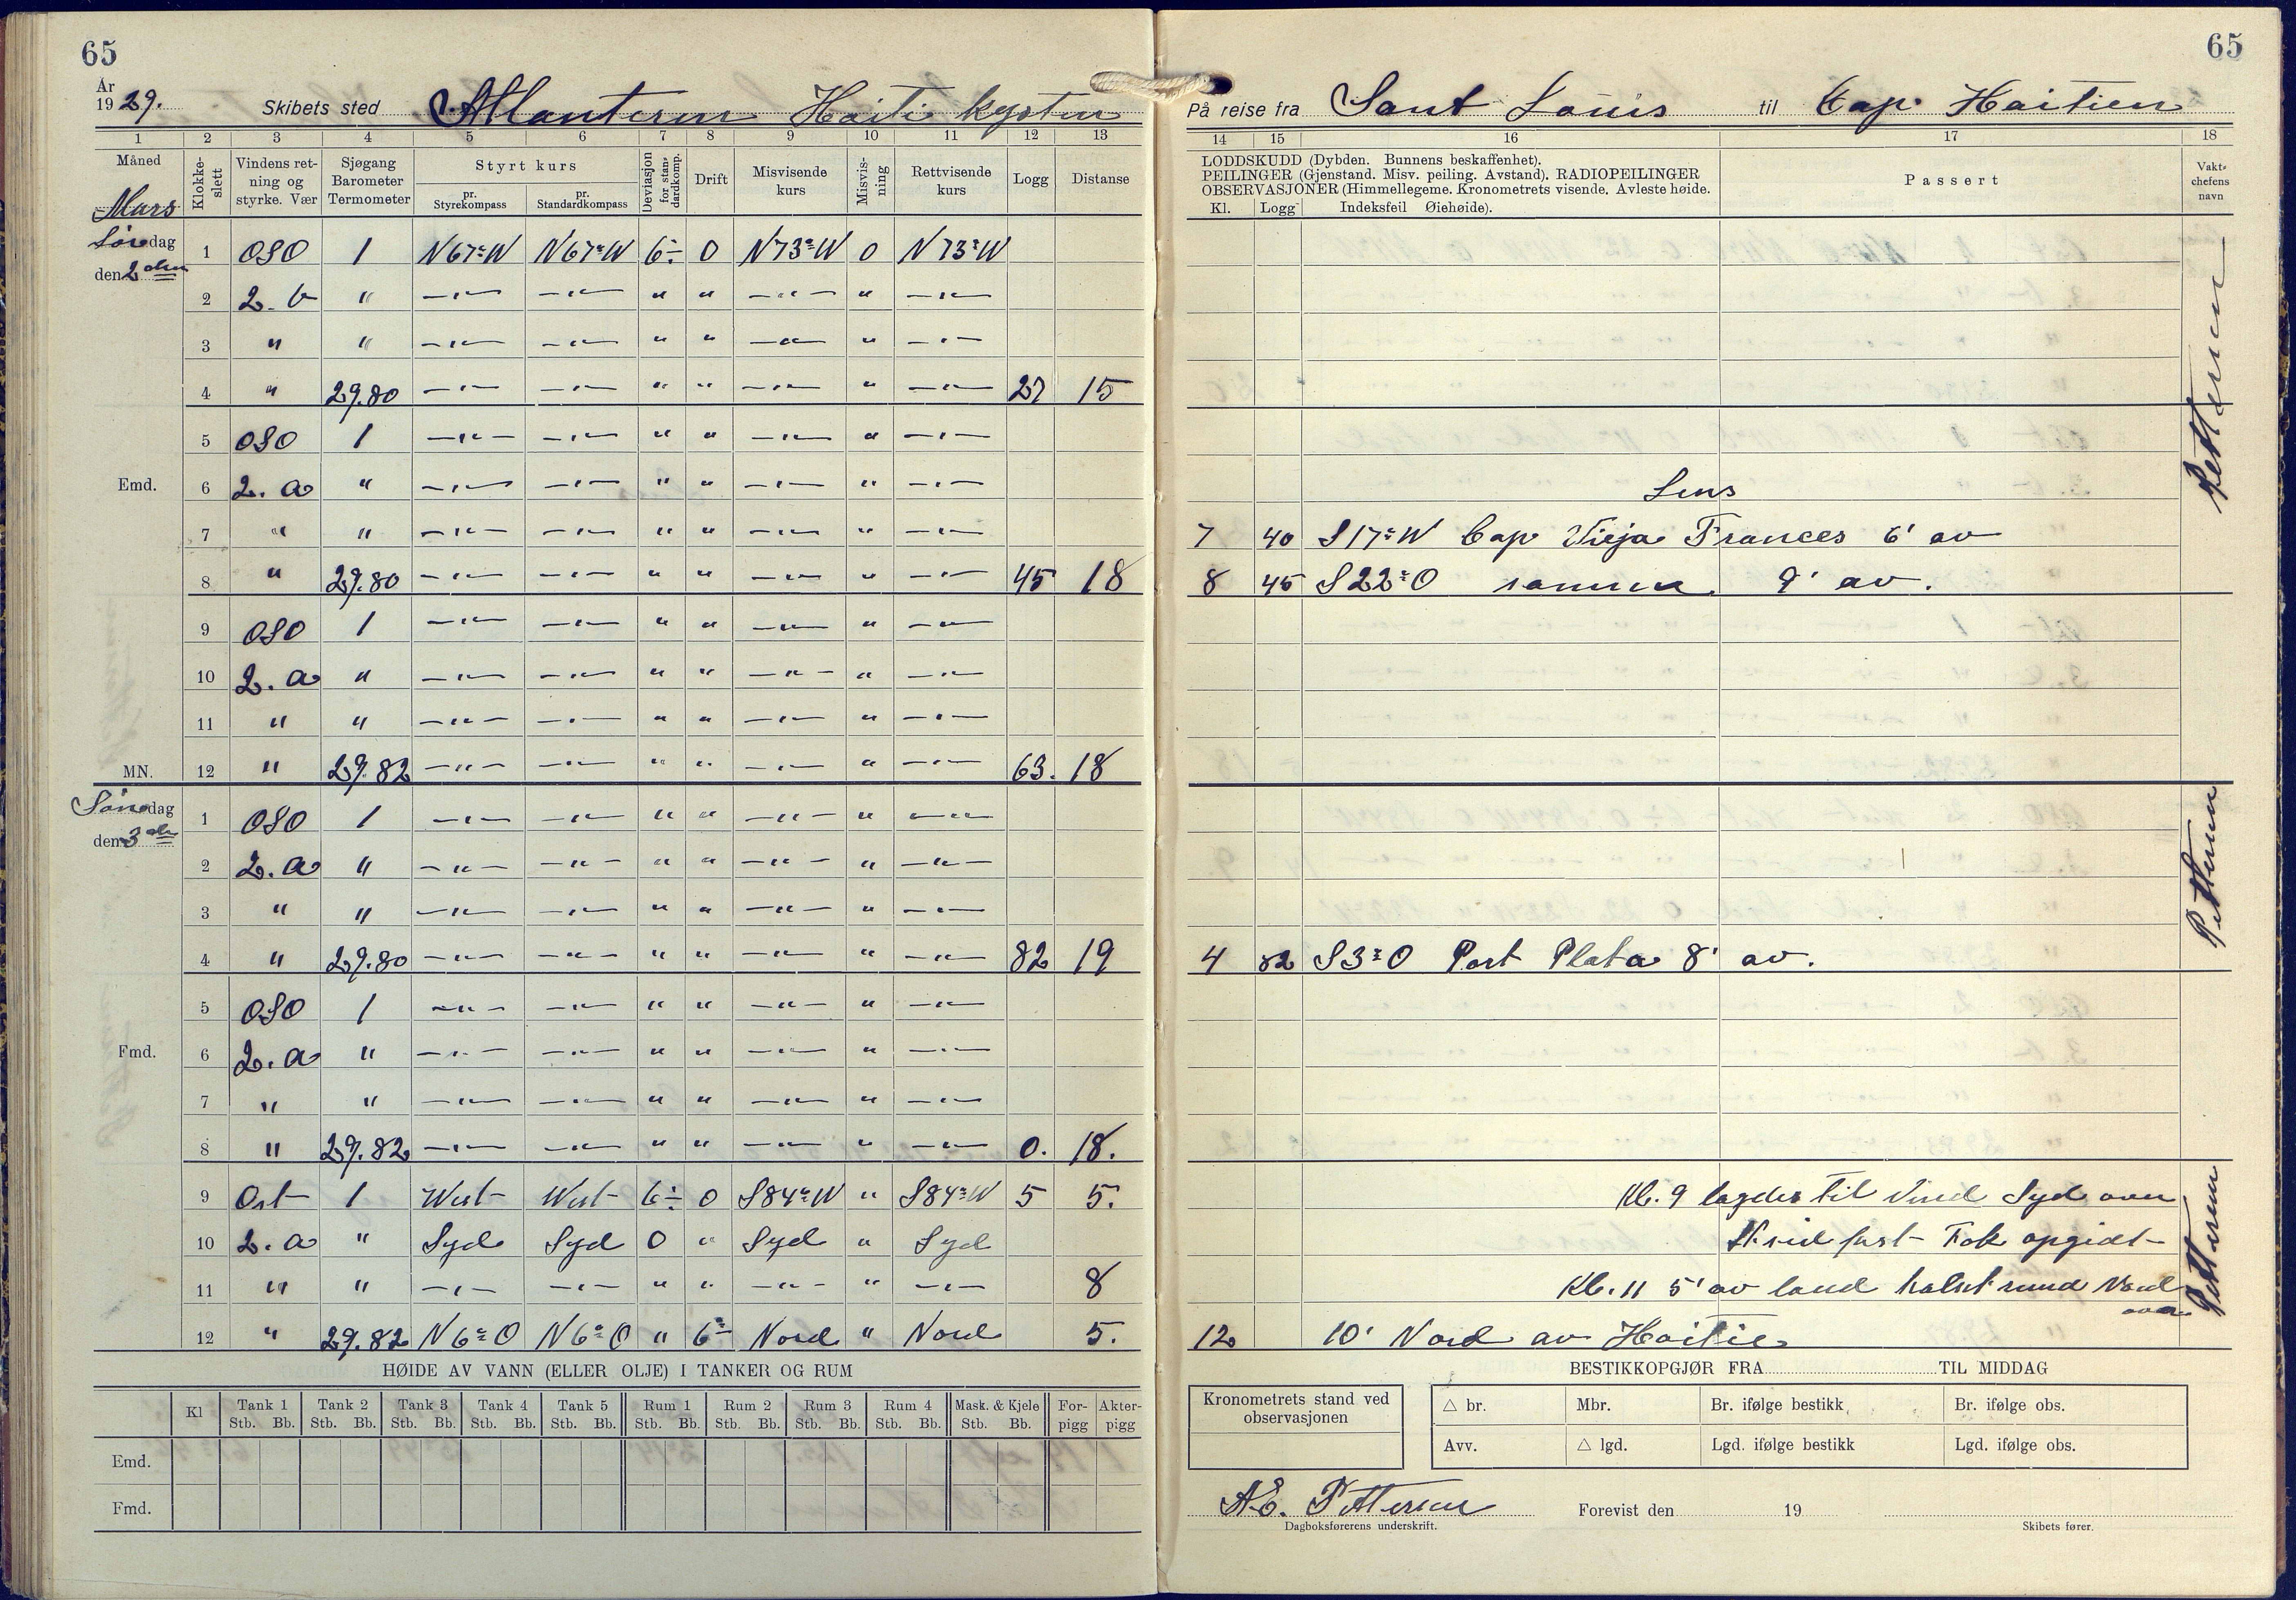 65
År
1929. Skibets sted Atlanteren Haiti kysten
1 2 3 4 5 6 7 8 9 10 11 12 13
Måned Klokkeslett Vindens retning og styrke. Vær Sjøgang Barometer Termometer Styrt kurs pr. Styrekompass pr. Standardkompass Deviasjon for standardkomp. Drift Misvisende kurs Misvisning Rettvisende kurs Logg Distanse
Mars
Løredag 1 OSO 1 N67°W N67°W 6÷ 0 N73°W 0 N73°W
den 2den
2 2. b " —"— —"— " " —"— " —"—
3 " " —"— —"— " " —"— " —"—
4 " 29.80 —"— —"— " " —"— " —"— 27 15
5 OSO 1 —"— —"— " " —"— " —"—
Emd. 6 2. a " —"— —"— " " —"— " —"—
7 " " —"— —"— " " —"— " —"—
8 " 29.80 —"— —"— " " —"— " —"— 45 18
9 OSO 1 —"— —"— " " —"— " —"—
10 2. a " —"— —"— " " —"— " —"—
11 " " —"— —"— " " —"— " —"—
MN. 12 " 29.82 —"— —"— " " —"— " —"— 63. 18
Søndag 1 OSO 1 —"— —"— " " —"— " —"—
den 3die
2 2. a " —"— —"— " " —"— " —"—
3 " " —"— —"— " " —"— " —"—
4 " 29.80 —"— —"— " " —"— " —"— 82 19
5 OSO 1 —"— —"— " " —"— " —"—
Fmd. 6 2. a " —"— —"— " " —"— " —"—
7 " " —"— —"— " " —"— " —"—
8 " 29.82 —"— —"— " " —"— " —"— 0. 18.
9 Ost 1 West West 6÷ 0 S84°W " S84°W 5 5.
10 2. a " Syd Syd 0 " Syd " Syd
11 " " —"— —"— " " —"— " —"— 8
12 " 29.82 N6°O N6°O " 6° Nord " Nord 5.
HØIDE AV VANN (ELLER OLJE) I TANKER OG RUM
Kl Tank 1 Tank 2 Tank 3 Tank 4 Tank 5 Rum 1 Rum 2 Rum 3 Rum 4 Mask. & Kjele For- Akter-
Stb. Bb. Stb. Bb. Stb. Bb. Stb. Bb. Stb. Bb. Stb. Bb. Stb. Bb. Stb. Bb. Stb. Bb. Stb. Bb. pigg pigg
Emd.
Fmd.
65
På reise fra Sant Louis til Cap Haitien
14 15 16 17 18
LODDSKUDD (Dybden. Bunnens beskaffenhet).
PEILINGER (Gjenstand. Misv. peiling. Avstand). RADIOPEILINGER
OBSERVASJONER (Himmellegeme. Kronometrets visende. Avleste høide.
Kl. Logg Indeksfeil Øiehøide).
Passert
Vaktchefens navn
Pettersen
Lens
7 40 S17°W Cap Vieja Frances 6' av
8 45 S22°O samme 9' av.
Pettersen
4 82 S3°O Port Plata 8' av.
Pettersen
Kl. 9 lagdes til Vind Syd over
Skrid fast Fok opgidt
Kl. 11 5' av land halset rund Nord
over
12 10' Nord av Haitie
BESTIKKOPGJØR FRA TIL MIDDAG
Kronometrets stand ved
observasjonen
△ br. Mbr. Br. ifølge bestikk Br. ifølge obs.
Avv. △ lgd. Lgd. ifølge bestikk Lgd. ifølge obs.
A.E. Pettersen Forevist den 19
Dagboksførerens underskrift. Skibets fører.